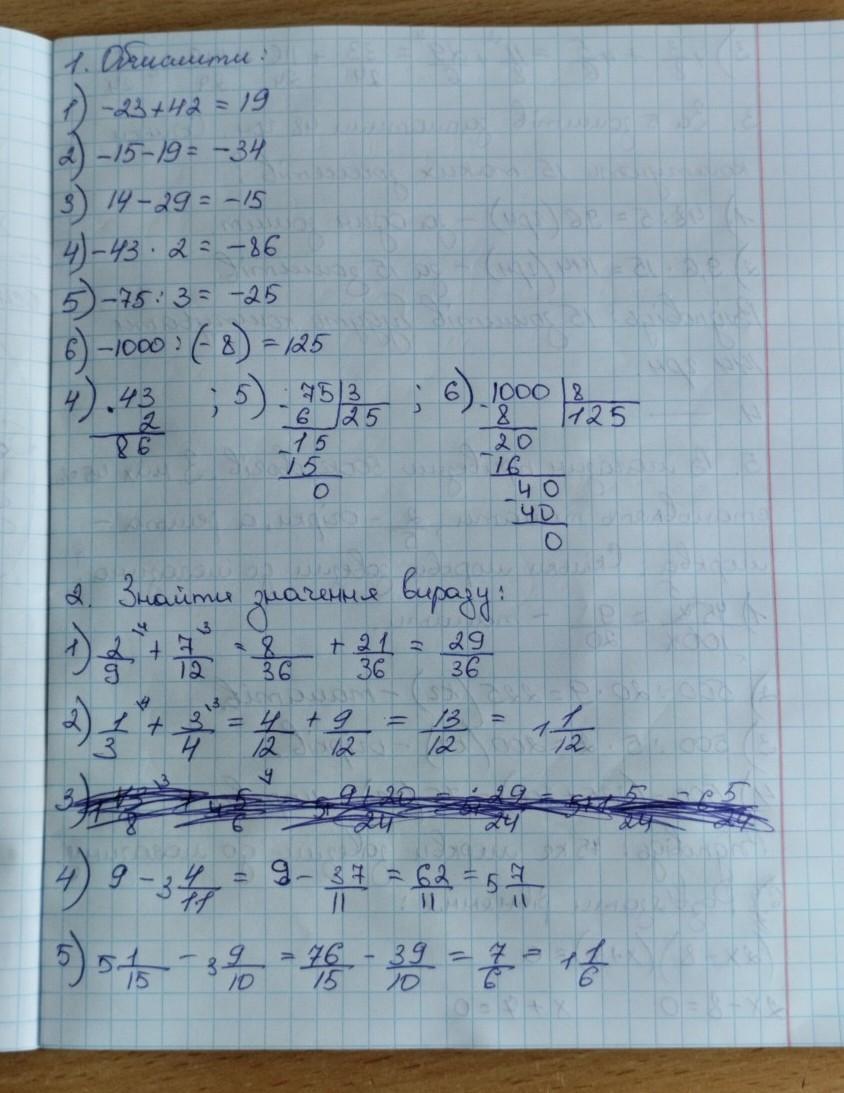 1. Обчислити:
1) -23+42 = 19
2) -15-19 = -34
3) 14-29 = -15
4) -43 · 2 = -86
5) -75 : 3 = -25
6) -1000 : (-8) = 125
4) · 43 ; 5) 75 | 3 ; 6) 1000 | 8
2 - 6 25 - 8 125
86 - 15 - 20
15 16
0 - 40
40
0
2. Знайти значення виразу:
1) 2/9 \4 + 7/12 \3 = 8/36 + 21/36 = 29/36
2) 1/3 \4 + 3/4 \3 = 4/12 + 9/12 = 13/12 = 1 1/12
3)
4) 9 - 3 4/11 = 9 - 37/11 = 62/11 = 5 7/11
5) 5 1/15 - 3 9/10 = 76/15 - 39/10 = 7/6 = 1 1/6